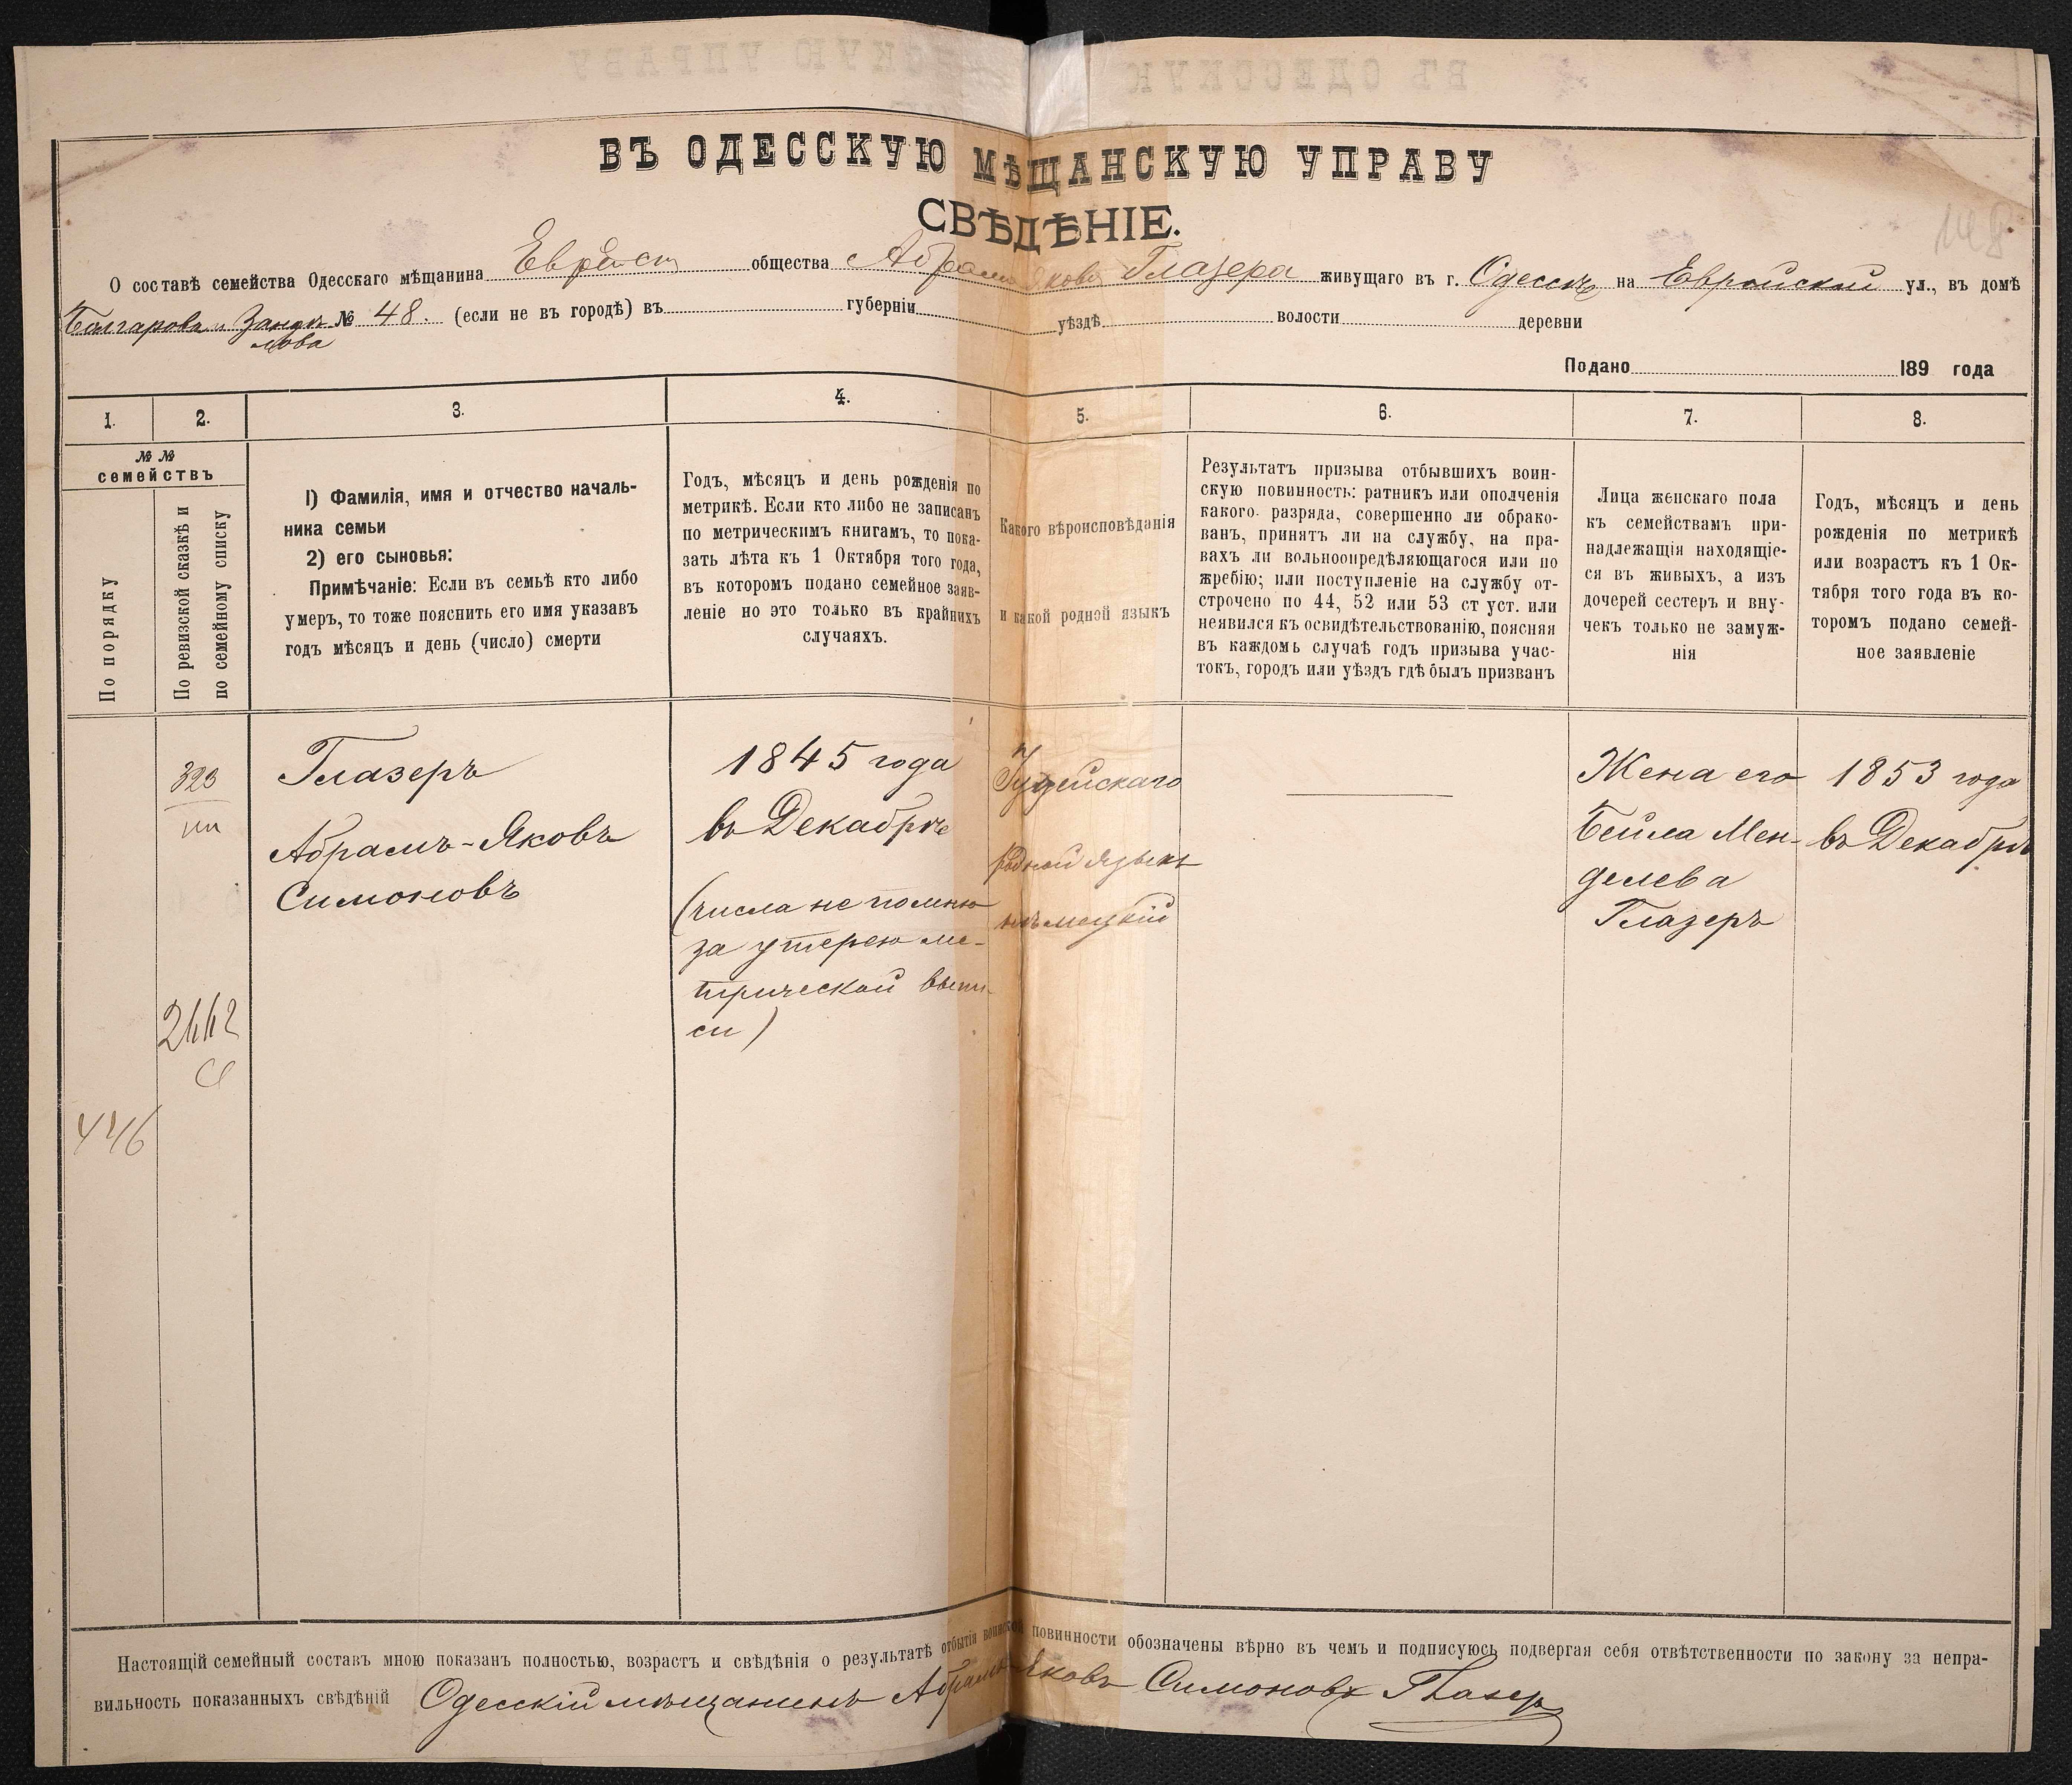 ВЪ ОДЕССКУЮ МѢЩАНСКУЮ УПРАВУ
СВѢДѢНІЕ.
О составѣ семейства Одесскаго мѣщанина Еврейск общества Абрама Якова Глазера живущаго въ г. Одессѣ на Еврейской ул., въ домѣ
№ 48. (если не въ городѣ) въ губерніи уѣздѣ волости деревни
Подано 189 года
1. 2. 3. 4. 5. 6. 7. 8.
№ №
семействъ
По порядку
По ревизской сказкѣ и
по семейному списку
1) Фамилія, имя и отчество началь-
ника семьи
2) его сыновья:
Примѣчаніе: Если въ семьѣ кто либо
умеръ, то тоже пояснить его имя указавъ
годъ мѣсяцъ и день (число) смерти
Годъ, мѣсяцъ и день рожденія по
метрикѣ. Если кто либо не записанъ
по метрическимъ книгамъ, то пока-
зать лѣта къ 1 Октября того года,
въ которомъ подано семейное заяв-
леніе но это только въ крайнихъ
случаяхъ.
Какого вѣроисповѣданія
и какой родной языкъ
Результатъ призыва отбывшихъ воин-
скую повинность: ратникъ или ополченія
какого разряда, совершенно ли обрако-
ванъ, принятъ ли на службу, на пра-
вахъ ли вольноопредѣляющагося или по
жребію; или поступленіе на службу от-
строчено по 44, 52 или 53 ст уст. или
неявился къ освидѣтельствованію, поясняя
въ каждомъ случаѣ годъ призыва учас-
токъ, городъ или уѣздъ гдѣ былъ призванъ
Лица женскаго пола
къ семействамъ при-
надлежащія находящіе-
ся въ живыхъ, а изъ
дочерей сестеръ и вну-
чекъ только не замуж-
нія
Годъ, мѣсяцъ и день
рожденія по метрикѣ
или возрастъ къ 1 Ок-
тября того года въ ко-
торомъ подано семей-
ное заявленіе
323
Глазеръ
Абрамъ-Яковъ
Симоновъ
1845 года
въ Декабрѣ
(числа не помню
за утерею ме-
трической выпи-
си)
Іудейскаго
родной языкъ
нѣмецкій
Жена его
Бейла Мен-
делева
Глазеръ
1853 года
въ Декабрѣ
2442
446
Настоящій семейный составъ мною показанъ полностью, возрастъ и свѣдѣнія о результатѣ отбытія воинской повинности обозначены вѣрно въ чемъ и подписуюсь подвергая себя отвѣтственности по закону за непра-
вильность показанныхъ свѣдѣній Одесскій мѣщанинъ Абрамъ-Яковъ Симоновъ Глазеръ